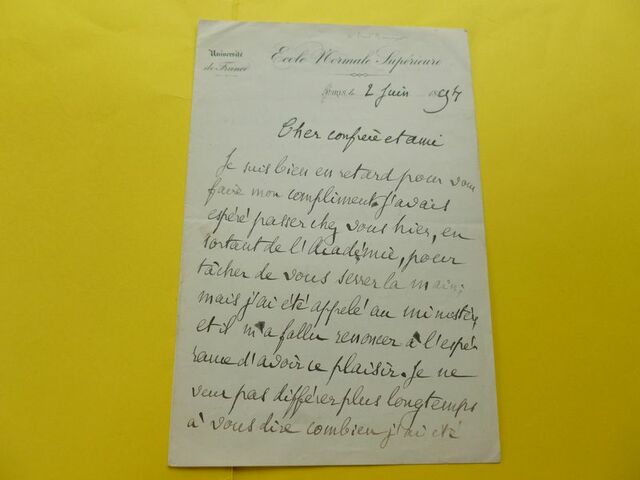 Université
de France
Ecole Normale Supérieure
Paris, le 2 Juin 1897
Cher confrère et ami
Je suis bien en retard pour vous
faire mon compliment. J'avais
espéré passer chez vous hier, en
sortant de l'Académie, pour
tâcher de vous serrer la main;
mais j'ai été appelé au ministère,
et il m'a fallu renoncer à l'espé-
rance d'avoir ce plaisir. Je ne
veux pas différer plus longtemps
à vous dire combien j'ai été